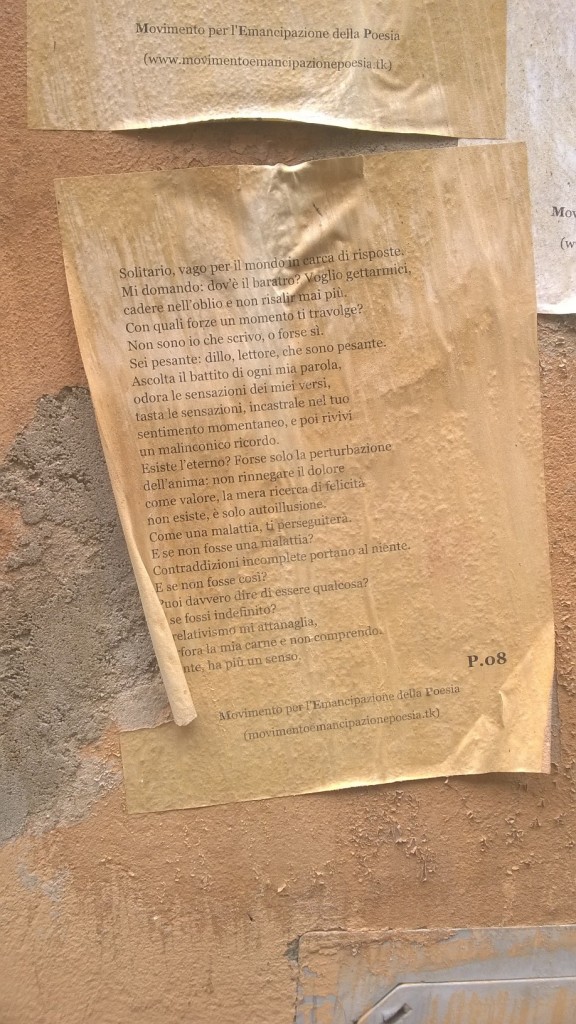 Movimento per l'Emancipazione della Poesia
(www.movimentoemancipazionepoesia.tk)
Mov
(w
Solitario, vago per il mondo in carca di risposte.
Mi domando: dov'è il baratro? Voglio gettarmici,
cadere nell'oblio e non risalir mai più.
Con quali forze un momento ti travolge?
Non sono io che scrivo, o forse sì.
Sei pesante: dillo, lettore, che sono pesante.
Ascolta il battito di ogni mia parola,
odora le sensazioni dei miei versi,
tasta le sensazioni, incastrale nel tuo
sentimento momentaneo, e poi rivivi
un malinconico ricordo.
Esiste l'eterno? Forse solo la perturbazione
dell'anima: non rinnegare il dolore
come valore, la mera ricerca di felicità
non esiste, è solo autoillusione.
Come una malattia, ti perseguiterà.
E se non fosse una malattia?
Contraddizioni incomplete portano al niente.
E se non fosse così?
Puoi davvero dire di essere qualcosa?
se fossi indefinito?
relativismo mi attanaglia,
fora la mia carne e non comprendo.
nte, ha più un senso.
P.08
Movimento per l'Emancipazione della Poesia
(movimentoemancipazionepoesia.tk)